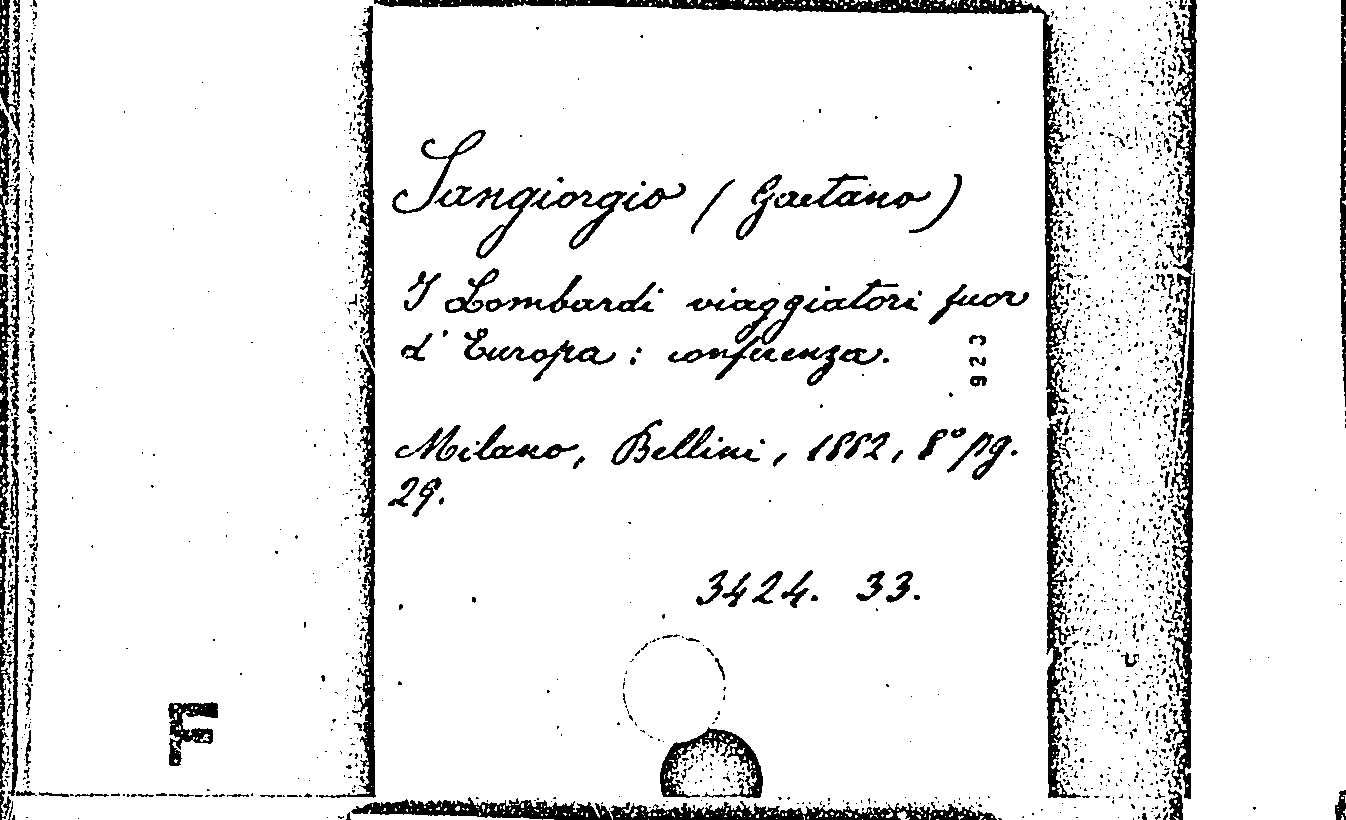 Sangiorgio (Gaetano)
I Lombardi viaggiatori fuor
d'Europa: conferenza.
923
Milano, Bellini, 1882, 8° pg.
29.
3424. 33.
F